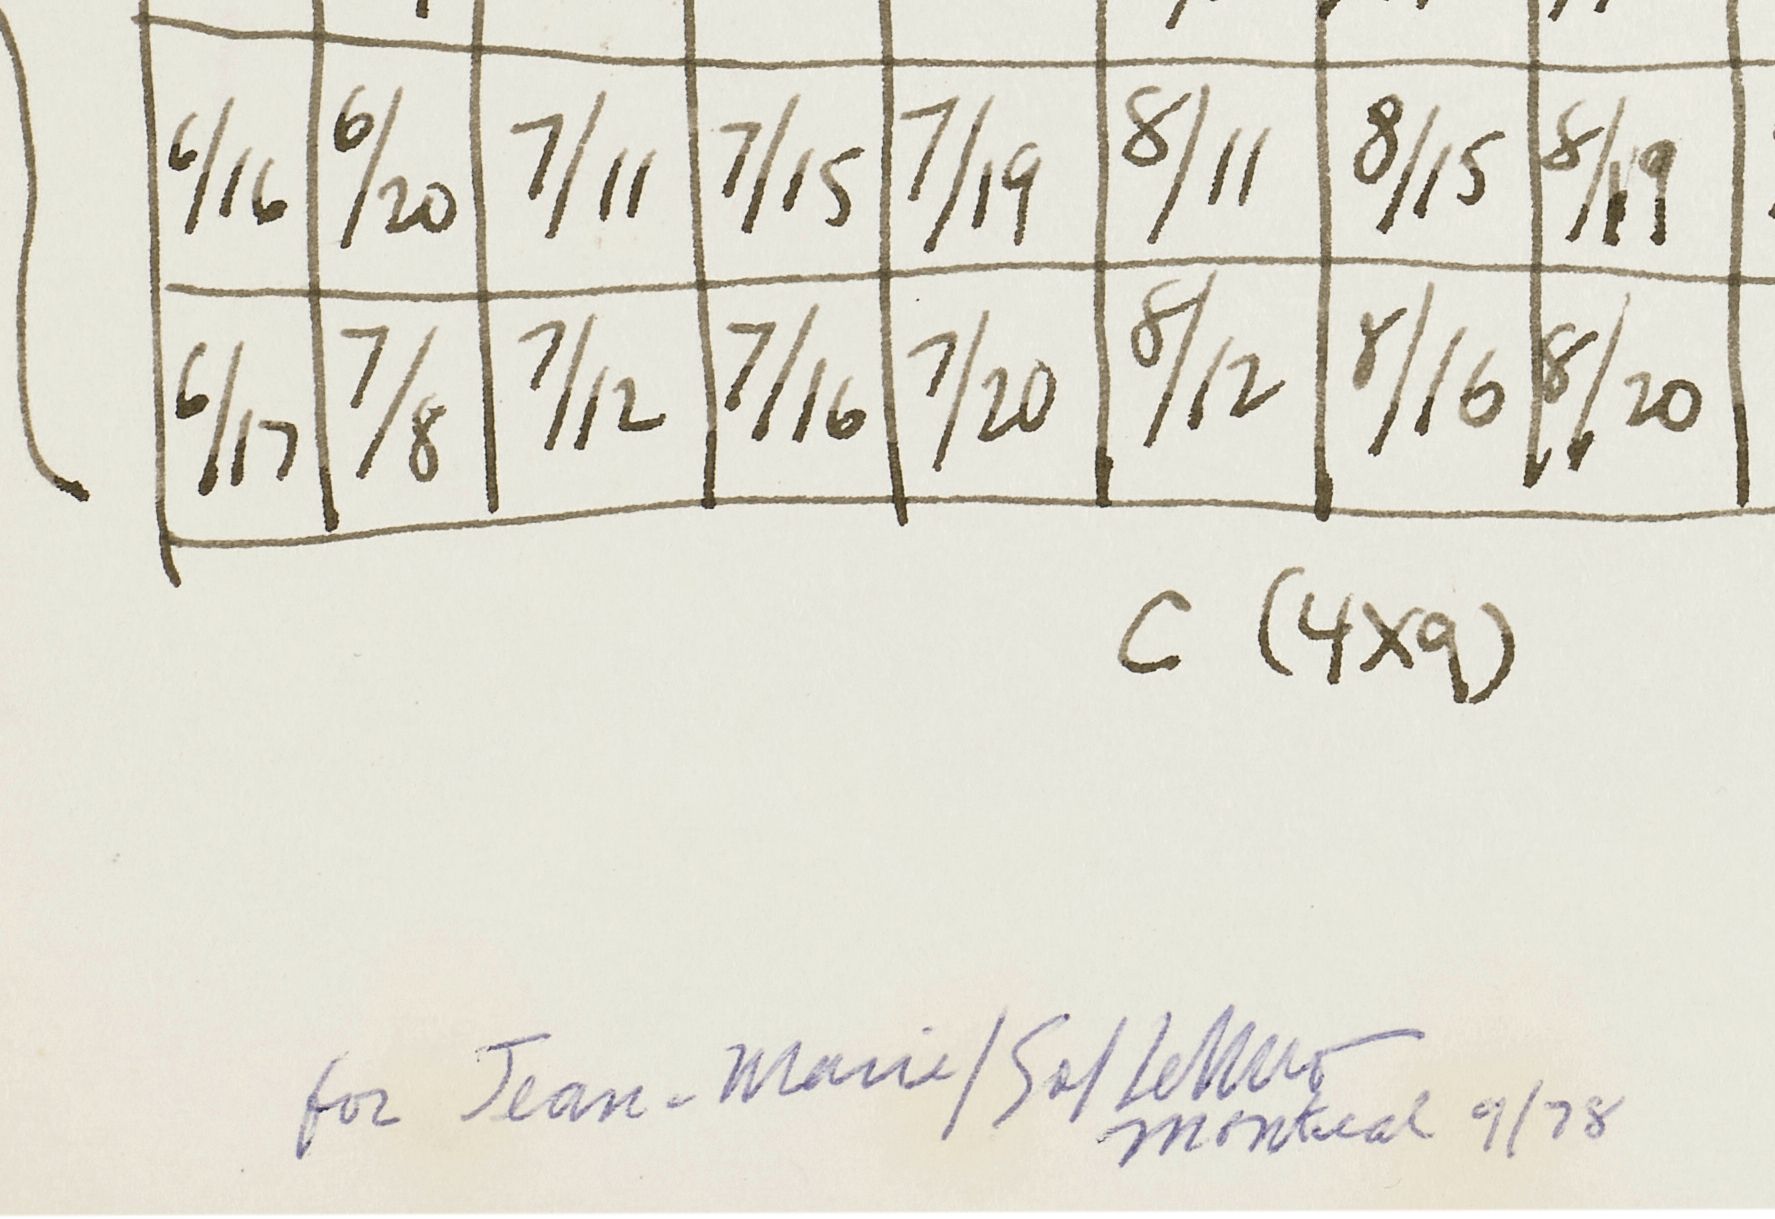 6/16 6/20 7/11 7/15 7/19 8/11 8/15 8/19
6/17 7/8 7/12 7/16 7/20 8/12 8/16 8/20
C (4x9)
for Jean-Marie / Sol LeWitt
Montreal 9/78